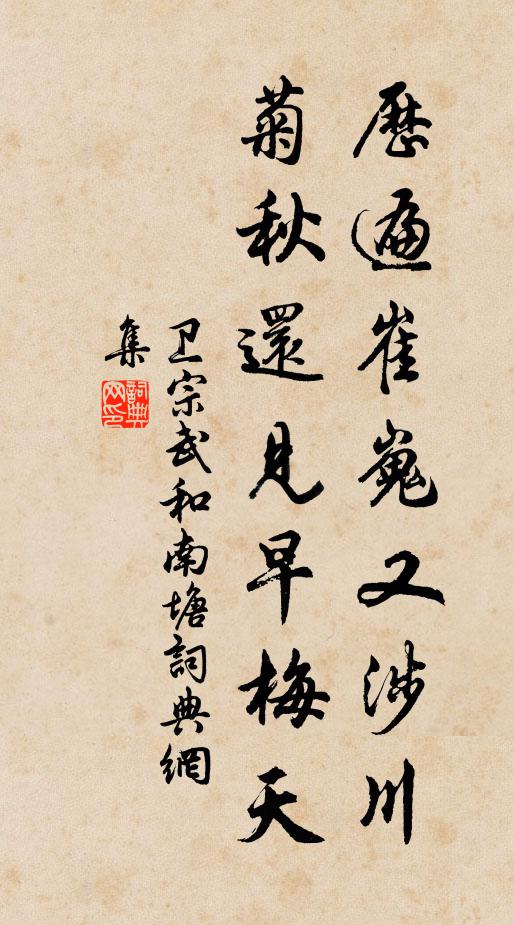 歷遍崔嵬又涉川
菊秋還見早梅天
卫宗武和南塘詞典網
集
詞典网印